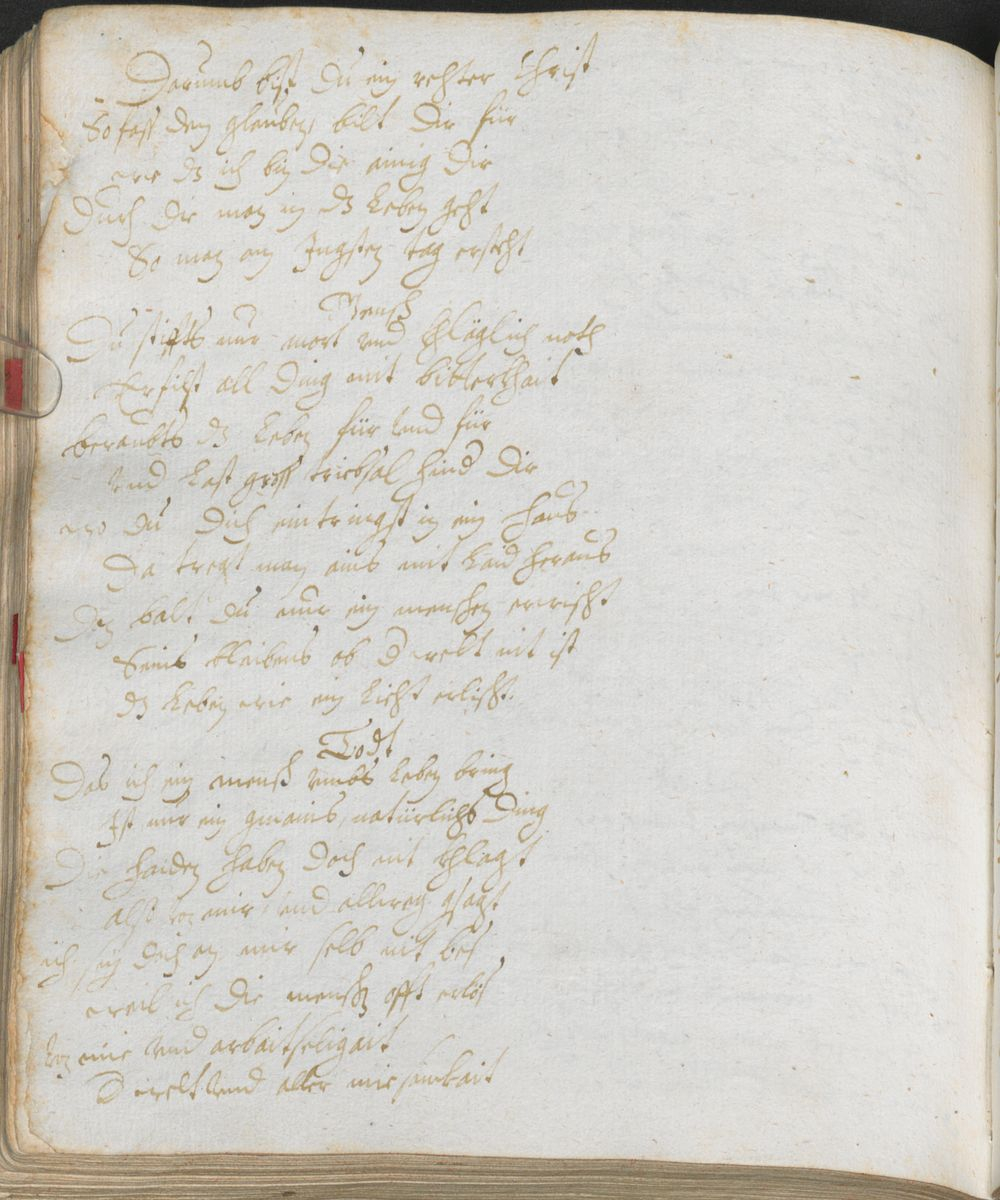 Darumb bist du ein rechter Christ
So fass den glauben, bilt dir für
wie dz ich bin die ainig Dir
Durch die man in dz Leben geht
So man am Jngsten tag ersteht
Mensch
Du stiffts nur mort vnd khläglich noth
Erfilst all Ding mit bitterkhait
beraubts dz Leben für vnd für
vnd Last gross triebsal hind dir
wo du dich eintringst in ein Haus
Da tregt man ains mit Laid heraus
Den balt du nur ein menschen erwischt
Seins bleibens ob D welt nit ist
dz Leben wie ein Liecht erlischt.
Todt
Das ich ein mensch vmbs Leben bring
Jst nur ein gmains, natürlichs Ding
Die Haiden haben doch nit khlagt
also von mir vnd allweg gsagt
ich sey doch an mir selb nit bes
weil ich die menschen offt erlös
von mie vnd arbaitseligait
D welt vnd aller miesamkait